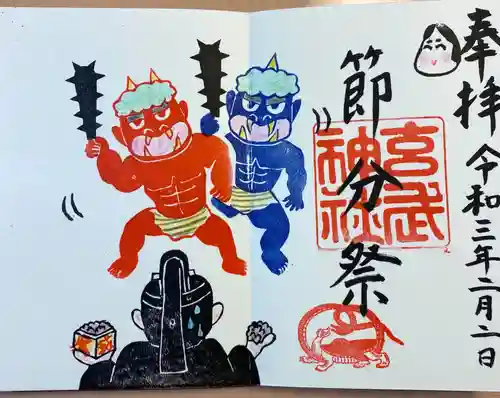 奉拝
令和三年二月二日
節分祭
玄武
神社